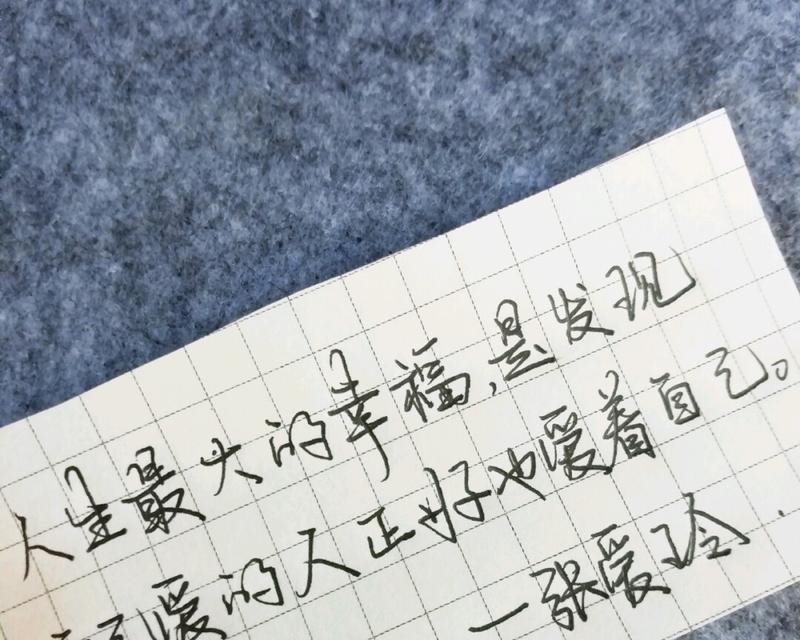 人生最大的幸福，是发现
爱的人正好也爱着自己。
—张爱玲